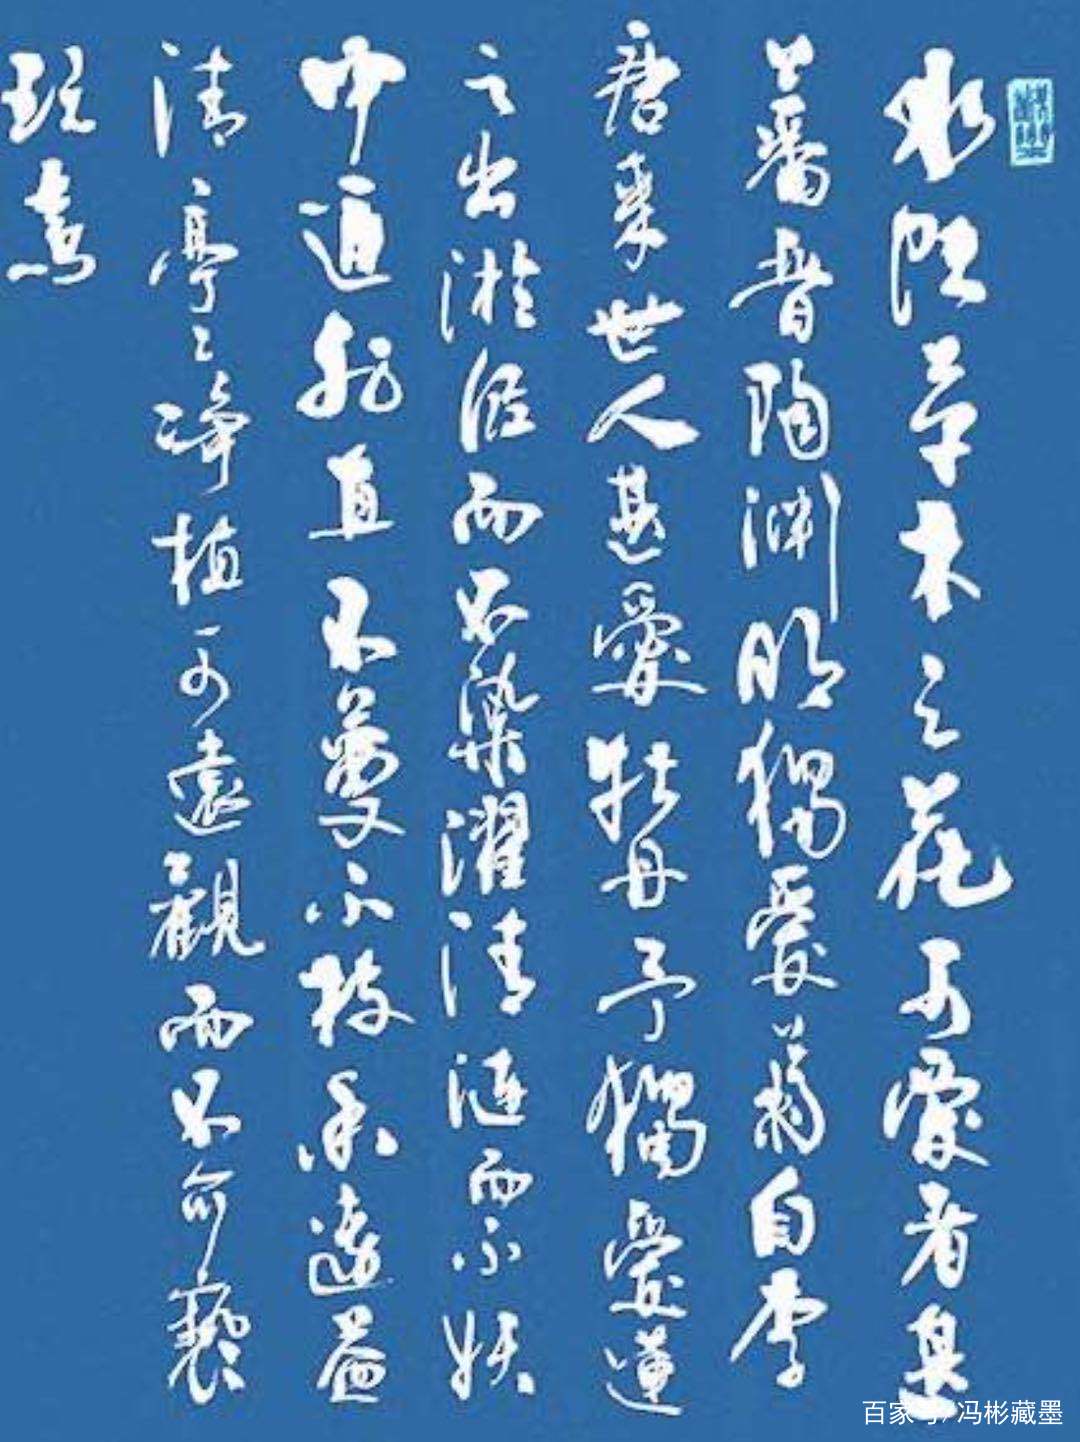 水陸草木之花可愛者甚
蕃昔陶淵明獨愛菊自李
唐來世人甚愛牡丹予獨愛蓮
之出淤泥而不染濯清漣而不妖
中通外直不蔓不枝香遠益
清亭々淨植可遠觀而不可褻
玩焉
百家号/冯彬藏墨